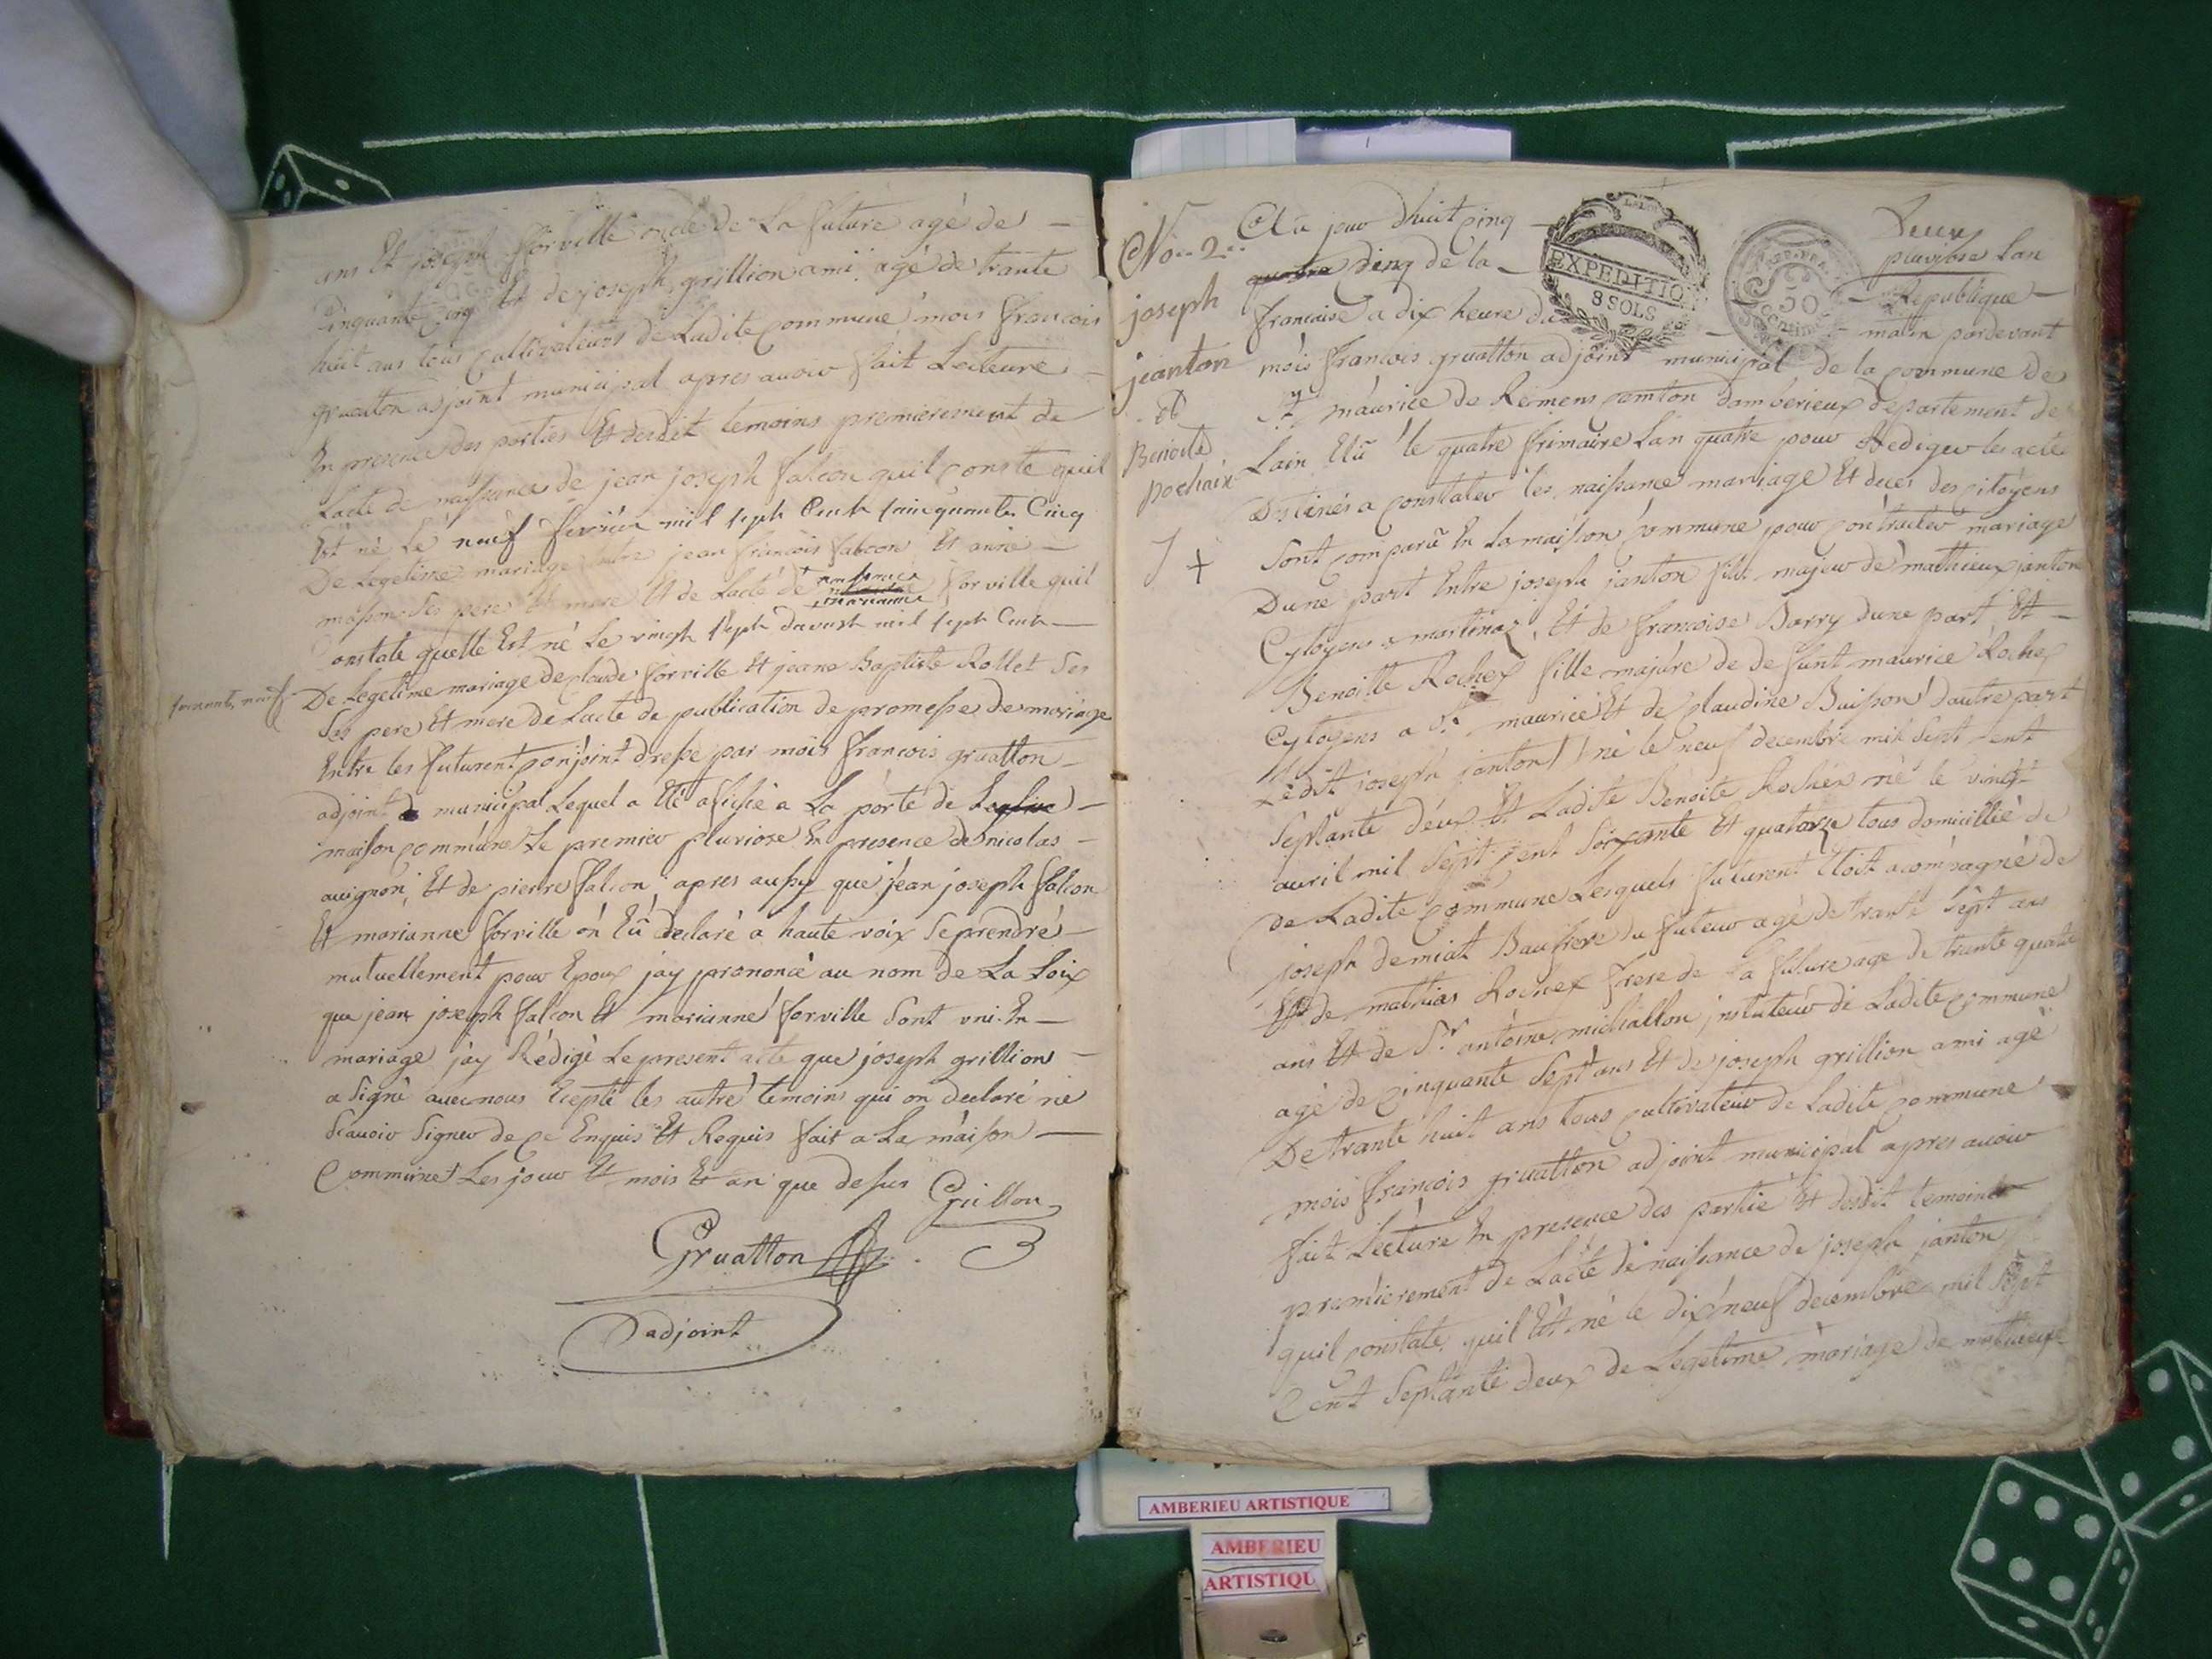 ans Et joseph forville oncle de La future agé de
Cinquante cinq Et de joseph grillion ami agé de trante
huit ans tous cultivateurs de Ladite commune mois francois
gruatton adjoint municipal apres avoir fait Lecteure
En presence des parties Et desdit temoins premierement de
Lacte de naissance de jean joseph falcon quil conste quil
Est né Le neuf fevrier mil sept Cent cinquante Cinq
De Legetime mariage Entre jean francois falcon Et anne
ses pere Et mere Et de Lacte de marianne forville quil
Constate quelle Est né Le vingt sept mil sept Cent
soixante neuf
De Legetime mariage de claude forville Et jeane Baptiste Rollet Ses
Ses pere Et mere de Lacte de publication de promesse de mariage
Entre les futurent conjoint dresse par mois francois gruatton
adjoint municipal Lequel a Eté afiché a La porte de Leglise
maison commune Le premier pluviose En presence de nicolas
avignon Et de pierre falcon apres aussy que jean joseph falcon
Et marianne forville on Eu declaré a haute voix Se prendre
mutuellement pour Epoux jay prononcé au nom de La Loix
que jean joseph falcon Et marianne forville Sont uni En
mariage jay Rédigé Le present acte que joseph grillion
a Signé avec nous Excepté les autre temoins qui on declaré ne
Scavoir Signer de ce Enquis Et Requis fait a La maison
Commune Les jour Et mois Et an que desus
Grillon
Gruatton
adjoint
No. 2
joseph
jeanton
et
Benoite
Rochaix
Au jour dhuit cinq
pluviose Lan
quatre cinq de la Republique
EXPEDITIO
8 SOLS
50
centim
francaise a dix heure du matin pardevant
mois francois gruatton adjoint municipal de la commune de
St maurice de Remens canton damberieux departement de
Lain Elû le quatre frimaire Lan quatre pour Rediger les acte
Destinés a constater les naissance mariage Et deces des citoyens
Sont comparû En La maison commune pour contracter mariage
Dune part Entre joseph janton fils majeur de mathieux janton
Cytoyens a martinaz Et de francoise Barry dune part Et
Benoitte Rochex fille majure de defunt maurice Rochex
Cytoyens a St maurice Et de claudine Buisson dautre part
Ledit joseph janton né le neuf decembre mil Sept cent
Septante deux Et Ladite Benoite Rochex né le vingt
avril mil Sept cent Soixante Et quatorze tous domicillié de
de Ladite commune Lesquels futurent Etoit acompagné de
joseph demiat Baufrere du futeur agé de trante Sept ans
Et de mathias Rochex frere de La future age de trante quatre
ans Et de Sr antoine michallon instuteur de Ladite commune
agé de cinquante Sept ans Et de joseph grillion ami agé
De trante huit ans tous cultivateur de Ladite commune
mois francois gruatton adjoint municipal apres avoir
fait Lecture En presence des partie Et desdit temoint
premierement de Lacte de naissance de joseph janton
quil constate quil Et né le dix neuf decembre mil Sept
Cent Septante deux de Legetime mariage de mathieux
AMBERIEU ARTISTIQUE
AMBERIEU
ARTISTIQU